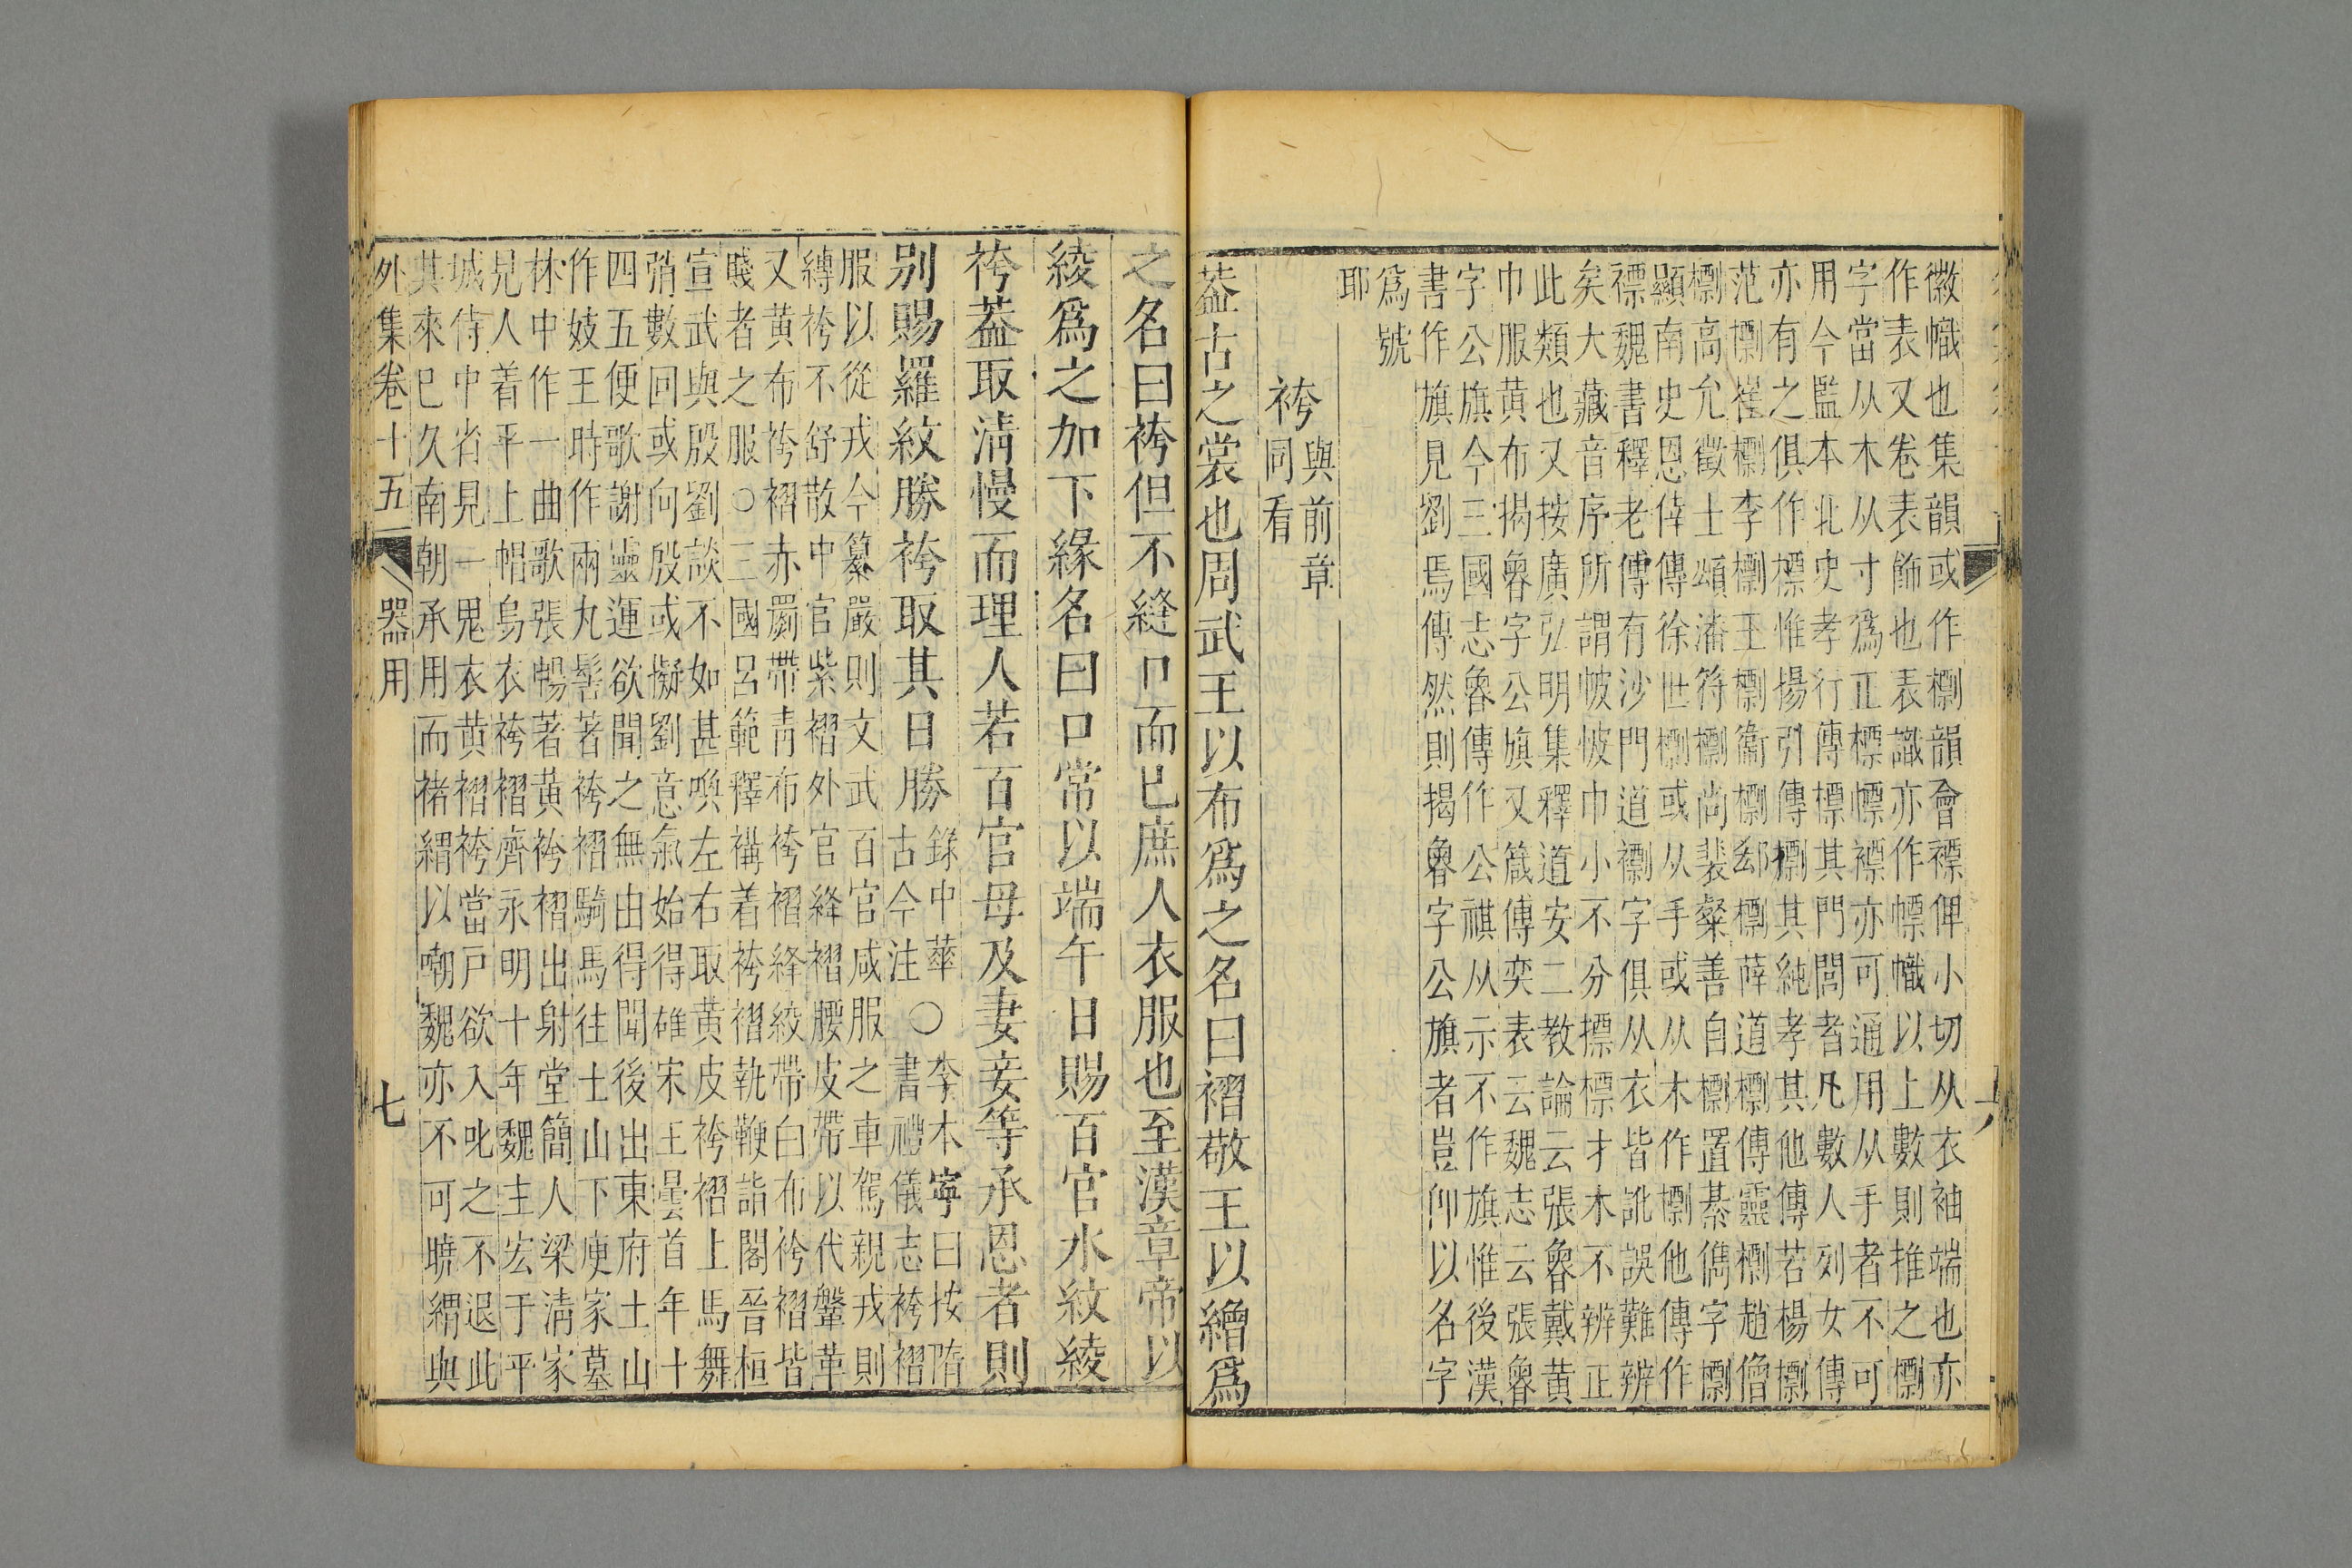 徽幟也集韻或作㯹韻會褾俾小切从衣袖端也亦
作表又卷表飾也表識亦作幖幟以上數則推之㯹
字當从木从寸爲正標幖褾亦可通用从手者不可
用今監本北史孝行傳標其門閭者凡數人列女傳
亦有之俱作標惟揚引傳㯹其純孝其他傳若楊㯹
范㯹崔㯹李㯹王㯹衞㯹郄㯹薛道㯹傳靈㯹趙僧
㯹高允徵士頌潘符㯹尚裴粲善自㯹置綦儁字㯹
顯南史恩倖傳徐世㯹或从手或从木作㯹他傳作
褾魏書釋老傳有沙門道𧝪字俱从衣皆訛誤難辨
矣大藏音序所謂帔怶巾小不分摽標才木不辨正
此類也又按廣弘明集釋道安二教論云張魯戴黃
巾服黃布揭魯字公旗又箴傳奕表云魏志云張魯
字公旗今三國志魯傳作公祺从示不作旗惟後漢
書作旗見劉焉傳然則揭魯字公旗者豈仰以名字
爲號
耶
袴與前章同看
葢古之裳也周武王以布爲之名曰褶敬王以繒爲
之名曰袴但不縫口而已庶人衣服也至漢章帝以
綾爲之加下緣名曰口常以端午日賜百官水紋綾
袴葢取淸慢而理人若百官母及妻妾等承恩者則
别賜羅紋勝袴取其日勝錄中華古今注○李本寧曰按隋書禮儀志袴褶
服以從戎今纂嚴則文武百官咸服之車駕親戎則
縛袴不舒散中官紫褶外官絳褶腰皮帶以代鞶革
又黃布袴褶赤罽帶靑布袴褶絳絞帶白布袴褶皆
賤者之服○三國呂範釋褠着袴褶執鞭詣閣晉桓
宣武與殷劉談不如甚喚左右取黃皮袴褶上馬舞
矟數回或向殷或擬劉意氣始得雄宋王曇首年十
四五便歌謝靈運欲聞之無由得聞後出東府土山
作妓王時作兩丸髻著袴褶騎馬往土山下庾家墓
林中作一曲歌張暢著黃袴褶出射堂簡人梁淸家
見人着平上帽烏衣袴褶齊永明十年魏主宏于平
城侍中省見一鬼衣黃褶袴當戶欲入叱之不退此
其來已久南朝承用而禇緭以嘲魏亦不可曉緭與
外集卷十五
器用
七